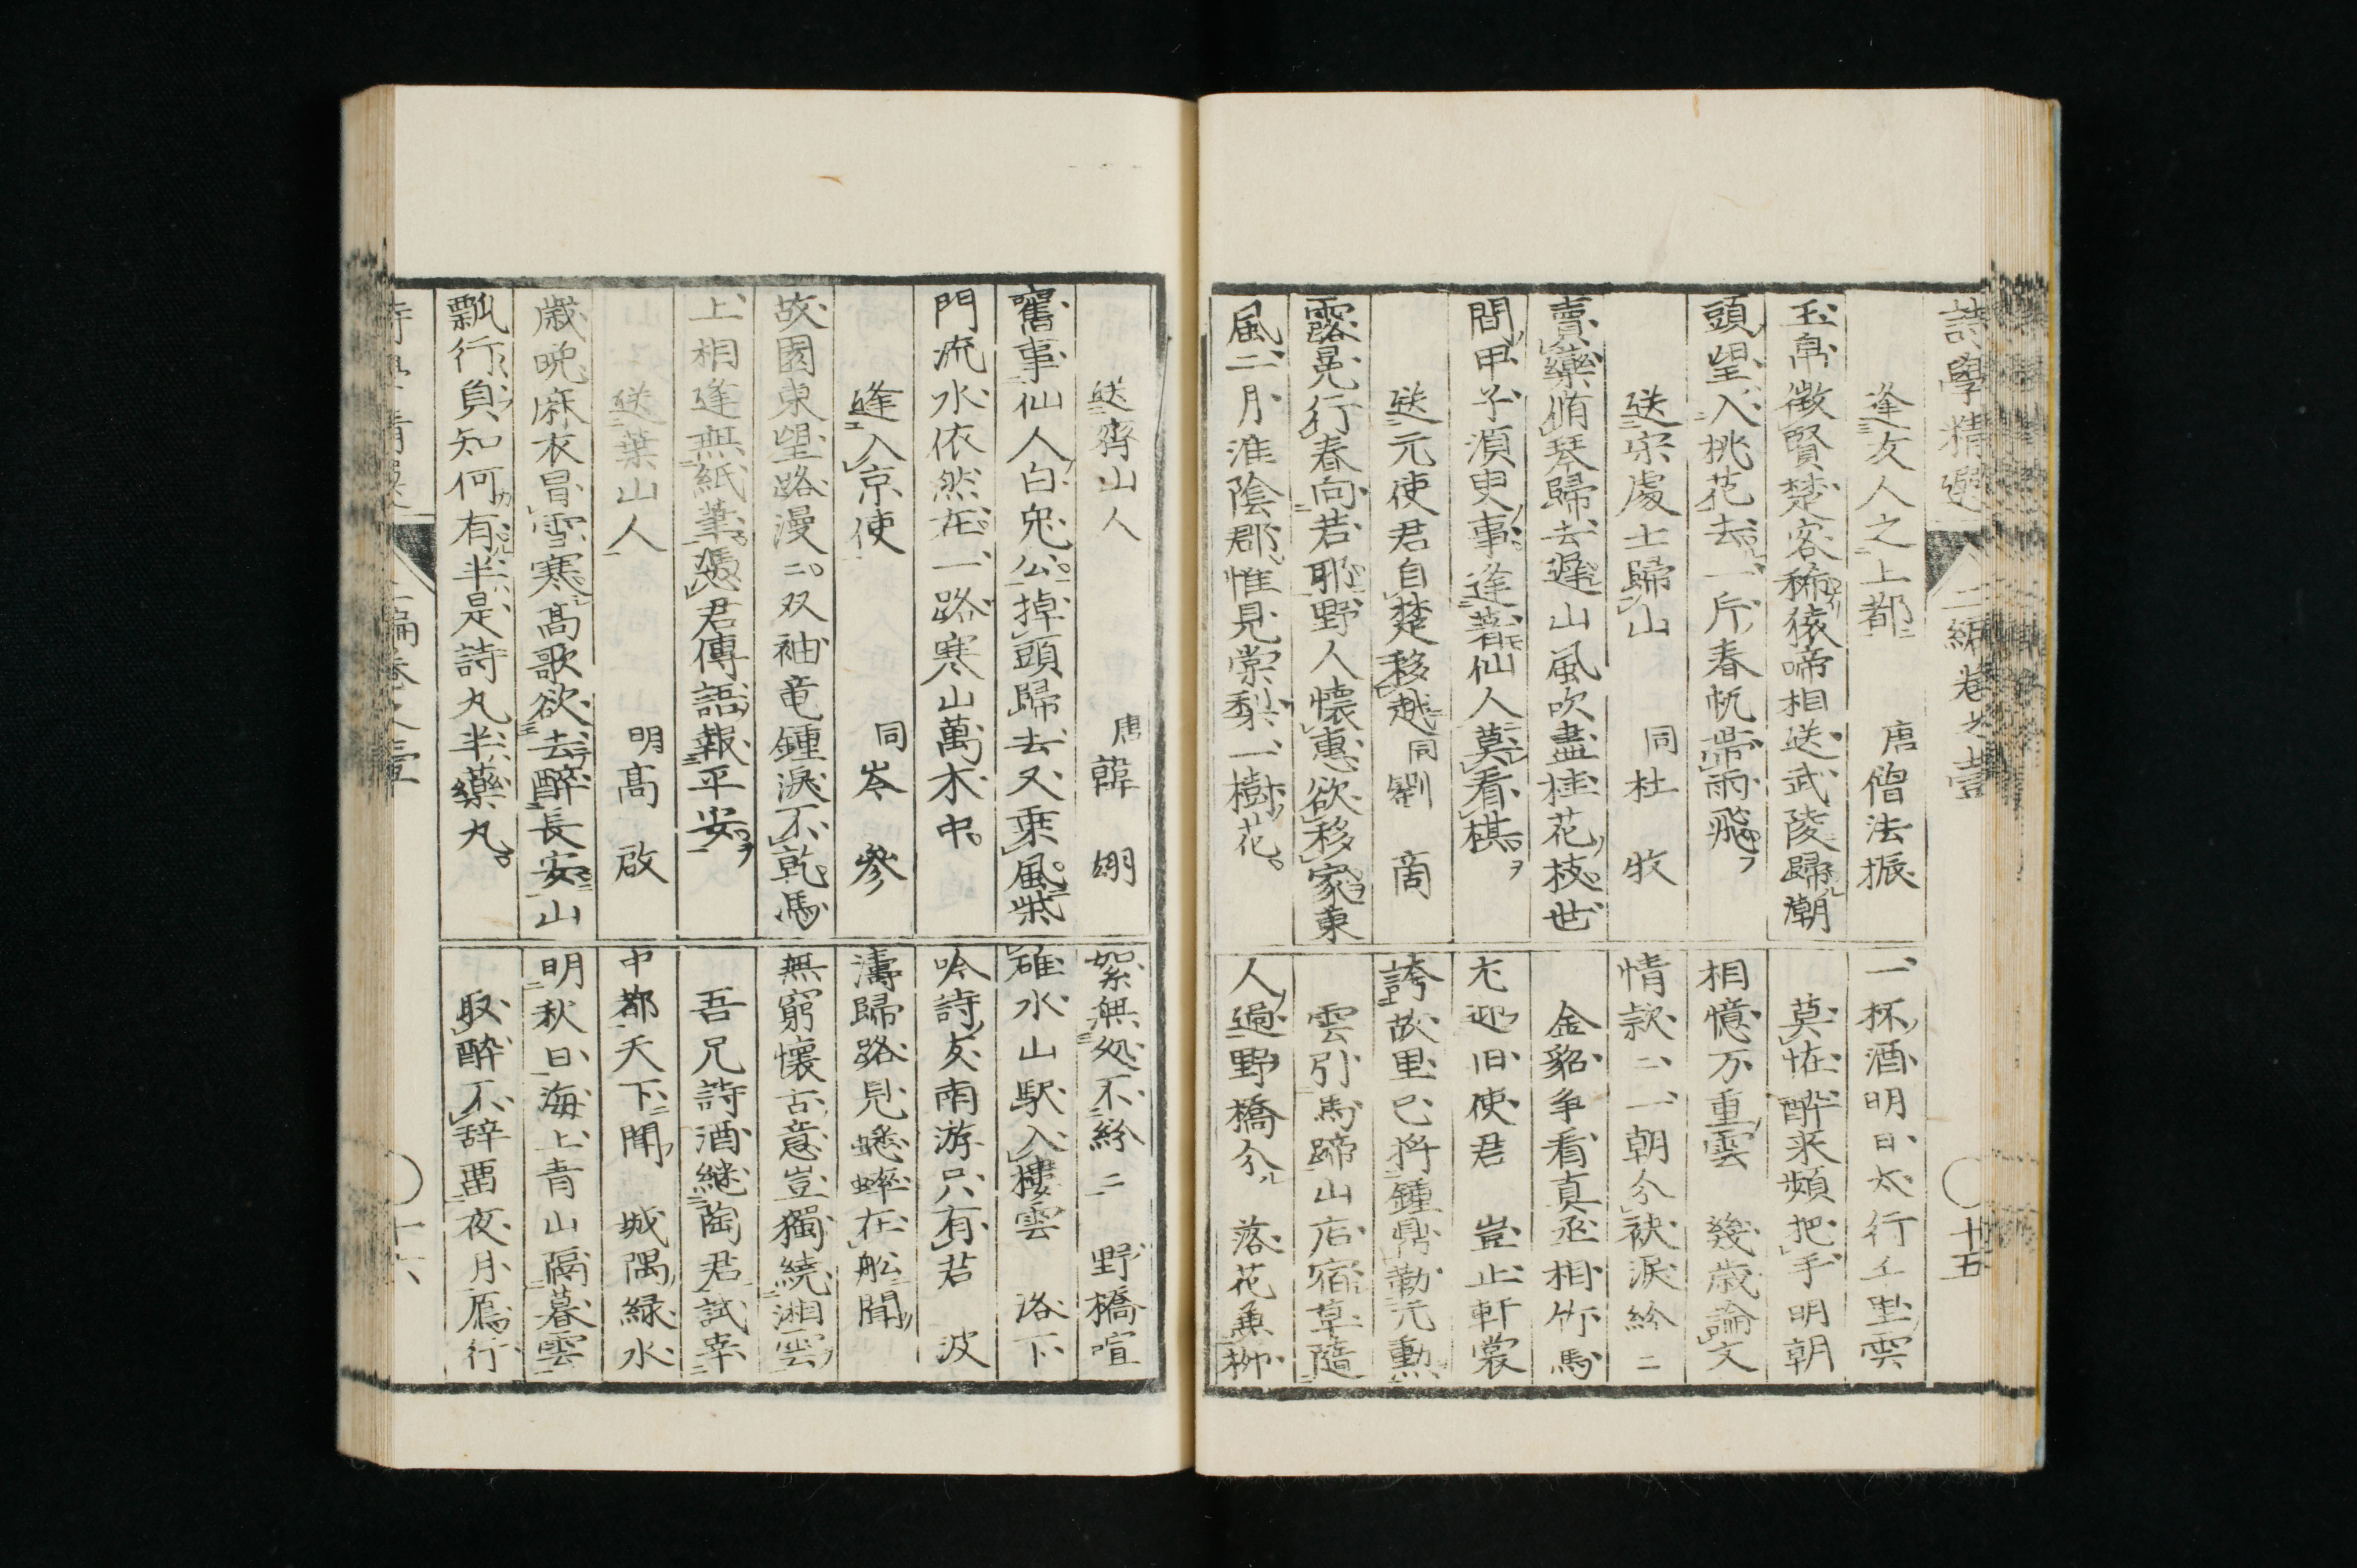 詩學精選 二編卷之壹 十五
逢友人之上都 唐 僧法振
玉帛徴賢楚客稀猿啼相送武陵歸潮
頭望入桃花去一片春帆帶雨飛
送宋處士歸山 同 杜牧
賣藥脩琴歸去遲山風吹盡桂花枝世
間甲子湏臾事逢著仙人莫看棋
送元使君自楚移越 同 劉商
露冕行春向若耶野人懷惠欲移家東
風二月淮陰郡惟見棠梨一樹花
一杯酒明日太行上里雲
莫怪醉来頻把手明朝
相憶万重雲 幾歳論文
情款二一朝分袂涙紛二
金貂争看真丞相竹馬
迎旧使君 豈止軒裳
誇故里已將鍾鼎勒元勳
雲引馬蹄山店宿草隨
人過野橋分 落花兼柳
送齊山人 唐 韓翃
舊事仙人白兎公掉頭歸去又乗風柴
門流水依然在一路寒山萬木中
逢入京使 同 岑參
故園東望路漫二双袖竜鍾涙不乾馬
上相逢無紙筆憑君傳語報平安
送葉山人 明 高啟
歳晩麻衣冒雪寒高歌欲去醉長安山
瓢行負知何有半是詩丸半藥丸
絮無処不紛二 野橋喧
碓水山駅入樓雲 洛下
吟詩友南游只有君 波
濤歸路見蟋蟀在舩聞
無窮懷古意豈獨繞湘雲
吾兄詩酒継陶君試宰
中都天下聞 城隅緑水
明秋日海上青山隔暮雲
取醉不辞留夜月鴈行
二編卷之壹 十六